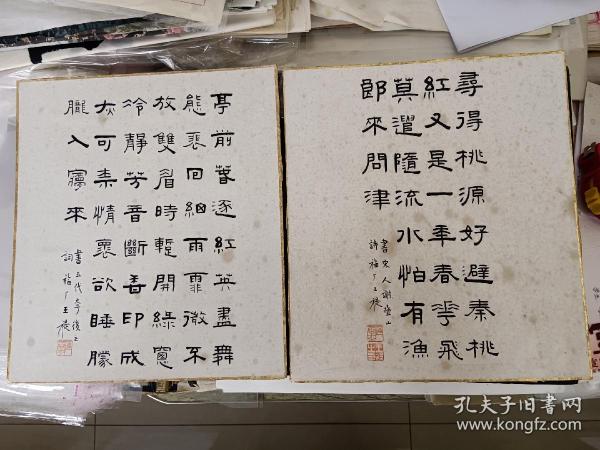 尋得桃源好避秦桃
紅又是一年春花飛
莫遣隨流水怕有漁
郎來問津
書宋人謝疊山
詩 梅厂王
亭前萅逐紅英盡舞
態裴回細雨霏微不
放雙眉時蹔開綠窗
冷靜芳音斷香印成
灰可柰情褱欲睡朦
朧入夢來
書五代李後主
詞 梅厂王
孔夫子旧书网
www.kongfz.com